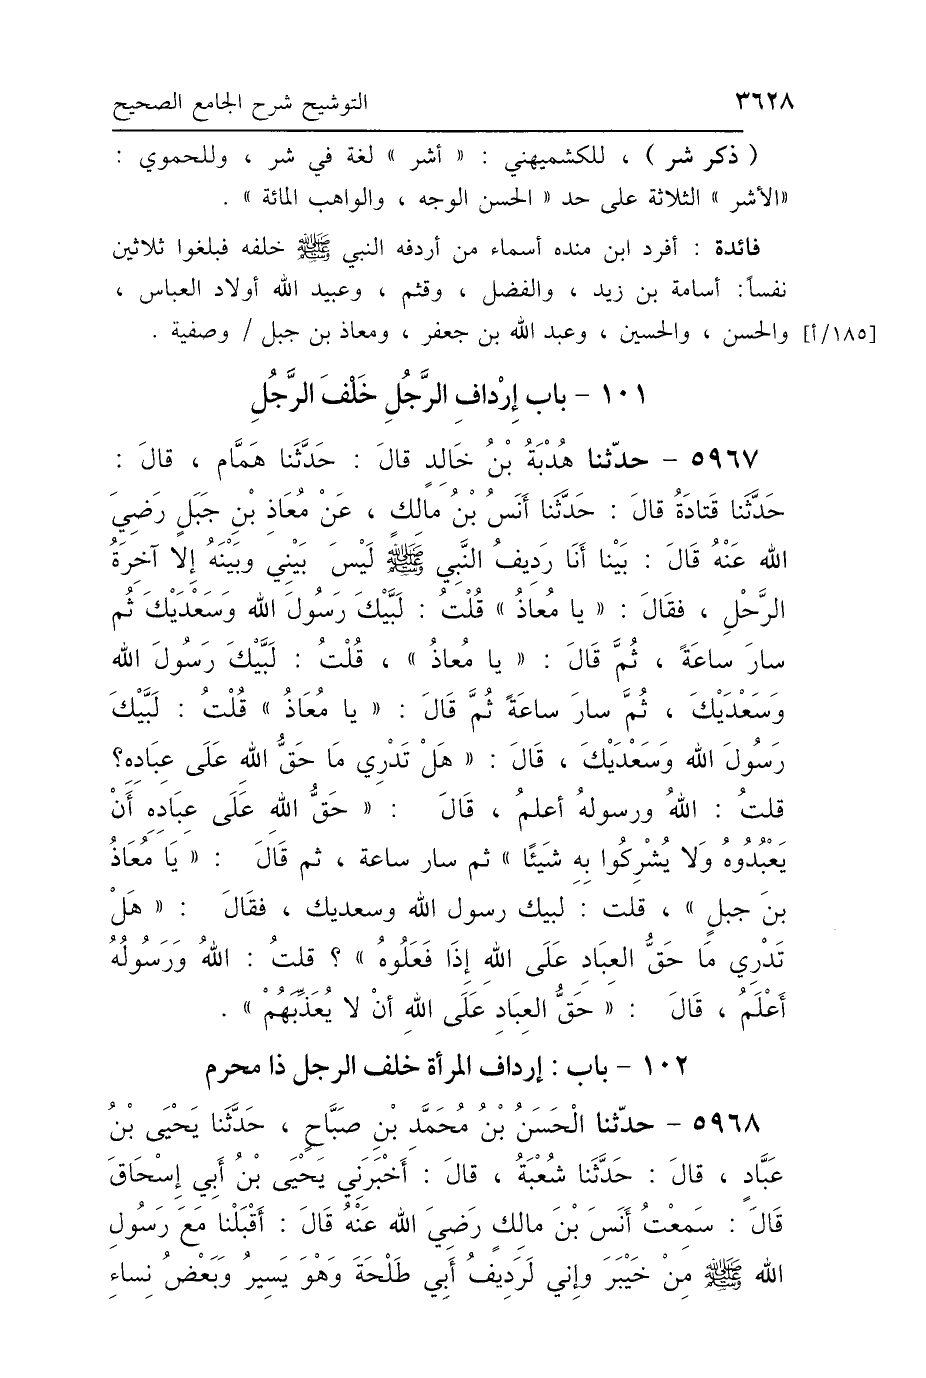 ٣٦٢٨ التوشيح شرح الجامع الصحيح
( ذكر شر ) ، للكشميهني : « أشر » لغة في شر ، وللحموي :
«الأشر » الثلاثة على حد « الحسن الوجه ، والواهب المائة » .
فائدة : أفرد ابن منده أسماء من أردفه النبي ﷺ خلفه فبلغوا ثلاثين
نفساً: أسامة بن زيد ، والفضل ، وقثم ، وعبيد الله أولاد العباس ،
[١٨٥/أ] والحسن ، والحسين ، وعبد الله بن جعفر ، ومعاذ بن جبل / وصفية .
١٠١ - باب إرْدافِ الرَّجُلِ خَلْفَ الرَّجُلِ
٥٩٦٧ - حدّثنا هُدْبَةُ بْنُ خَالِدٍ قالَ : حَدَّثَنا هَمَّام ، قالَ :
حَدَّثَنا قَتادَةُ قالَ : حَدَّثَنا أَنَسُ بْنُ مالِكٍ ، عَنْ مُعَاذِ بْنِ جَبَلٍ رَضِيَ
الله عَنْهُ قَالَ : بَيْنا أنَا رَدِيفُ النَّبي ﷺ لَيْسَ بَيْنِي وبَيْنَهُ إلا آخِرَةُ
الرَّحْلِ ، فقَالَ : « يا مُعاذُ » قُلْتُ : لَبَّيْكَ رَسُولَ الله وَسَعْدَيْكَ ثُم
سارَ ساعَةً ، ثُمَّ قَالَ : « يا مُعاذُ » ، قُلْتُ : لَبَّيْكَ رَسُولَ الله
وَسَعْدَيْكَ ، ثُمَّ سارَ ساعَةً ثُمَّ قَالَ : « يا مُعَاذُ » قُلْتُ : لَبَّيْكَ
رَسُولَ الله وَسَعْدَيْكَ ، قَالَ : « هَلْ تَدْرِي مَا حَقُّ الله عَلَى عِبَادِهِ؟
قلتُ : اللهُ ورسولهُ أعلمُ ، قَالَ : « حَقُّ اللهِ عَلَى عِبَادِهِ أَنْ
يَعْبُدُوهُ وَلا يُشْرِكُوا بِهِ شَيئًا » ثم سار ساعة ، ثم قَالَ : « يَا مُعَاذُ
بنَ جبلٍ » ، قلت : لبيك رسول الله وسعديك ، فقَالَ : « هَلْ
تَدْرِي مَا حَقُّ العِبادِ عَلَى اللهِ إذَا فَعَلُوهُ » ؟ قلتُ : اللهُ وَرَسُولُهُ
أَعْلَمُ ، قَالَ : « حَقُّ العِبَادِ عَلَى اللهِ أنْ لا يُعَذِّبَهُمْ » .
١٠٢ - باب : إرداف المرأة خلف الرجل ذا محرم
٥٩٦٨ - حدّثنا الْحَسَنُ بْنُ مُحَمَّدِ بْنِ صَبَّاحٍ ، حَدَّثَنا يَحْيَى بْنُ
عَبَّادٍ ، قَالَ : حَدَّثَنا شُعْبَةُ ، قالَ : أخْبَرَنِي يَحْيَى بْنُ أبِي إسْحَاقَ
قَالَ : سَمِعْتُ أَنَسَ بْنَ مالِكٍ رَضِيَ الله عَنْهُ قَالَ : أقْبَلْنا مَعَ رَسُولِ
الله ﷺ مِنْ خَيْبَرَ وإني لَرَدِيفُ أبِي طَلْحَةَ وَهوَ يَسِيرُ وَبَعْضُ نِساءِ